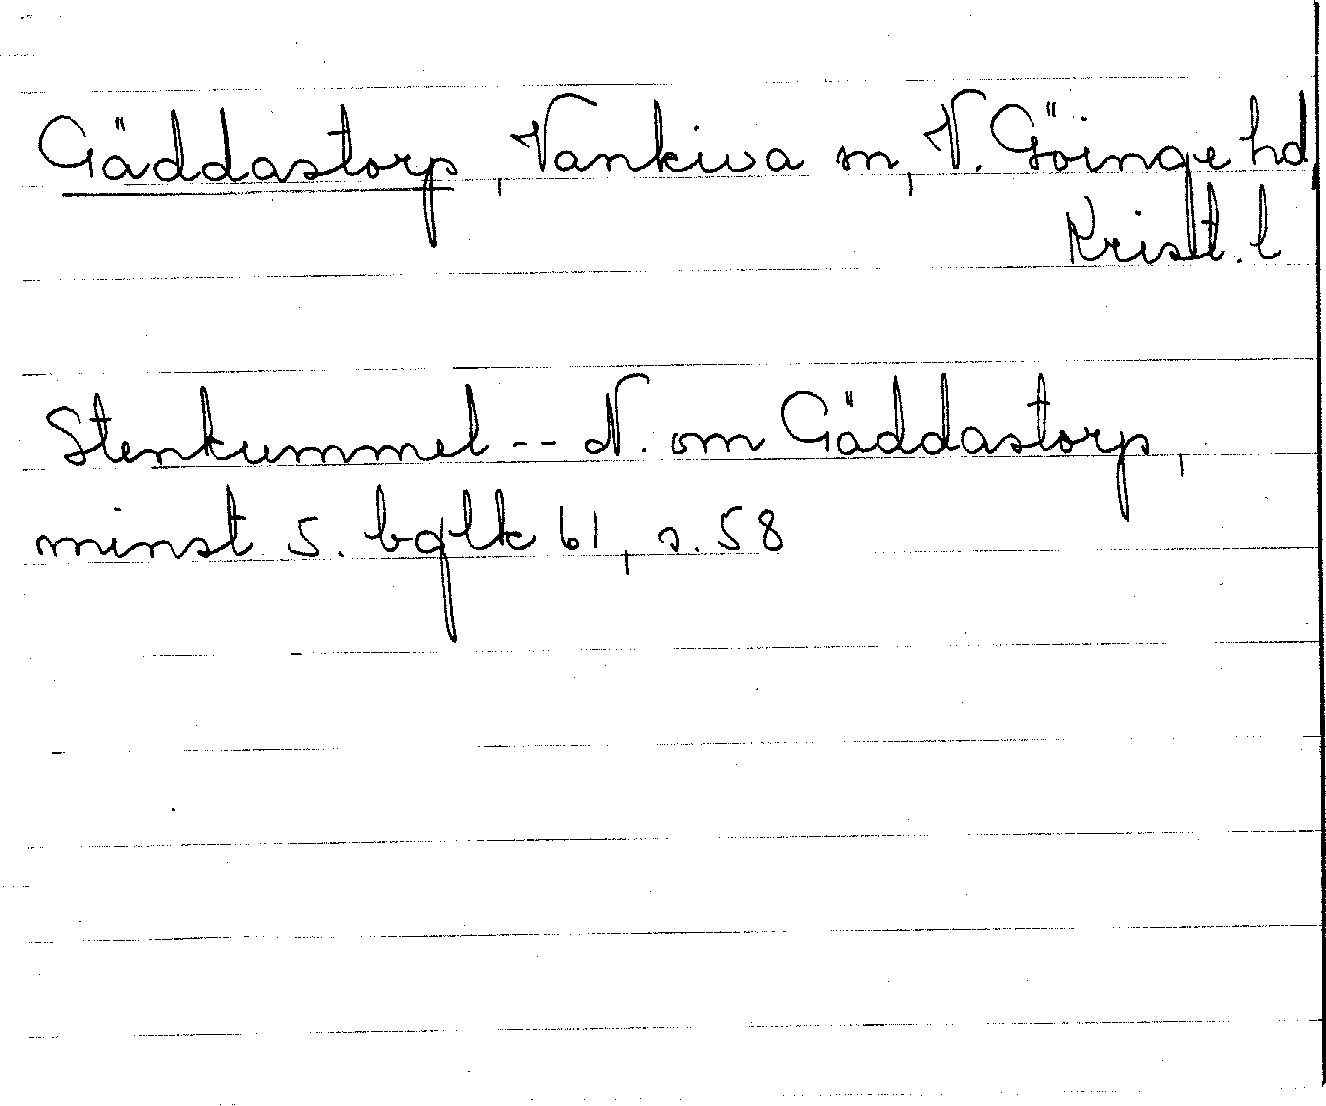 Gäddastorp, Vankiva sn, V. Göinge hd,
Krist. l
Stenkummel -- N. om Gäddastorp,
minst 5. bglk 61, s. 58